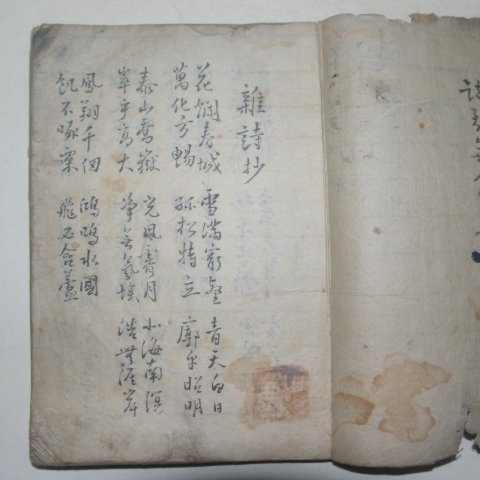 雜詩抄
花爛春城 雪滿窮壑 青天白日
萬化方暢 孤松特立 廓乎昭明
泰山喬嶽 光風霽月 北海南溟
崒乎高大 淨無氛埃 浩無涯岸
鳳翔千仞 鴻鳴水國
飢不啄粟 飛必含蘆